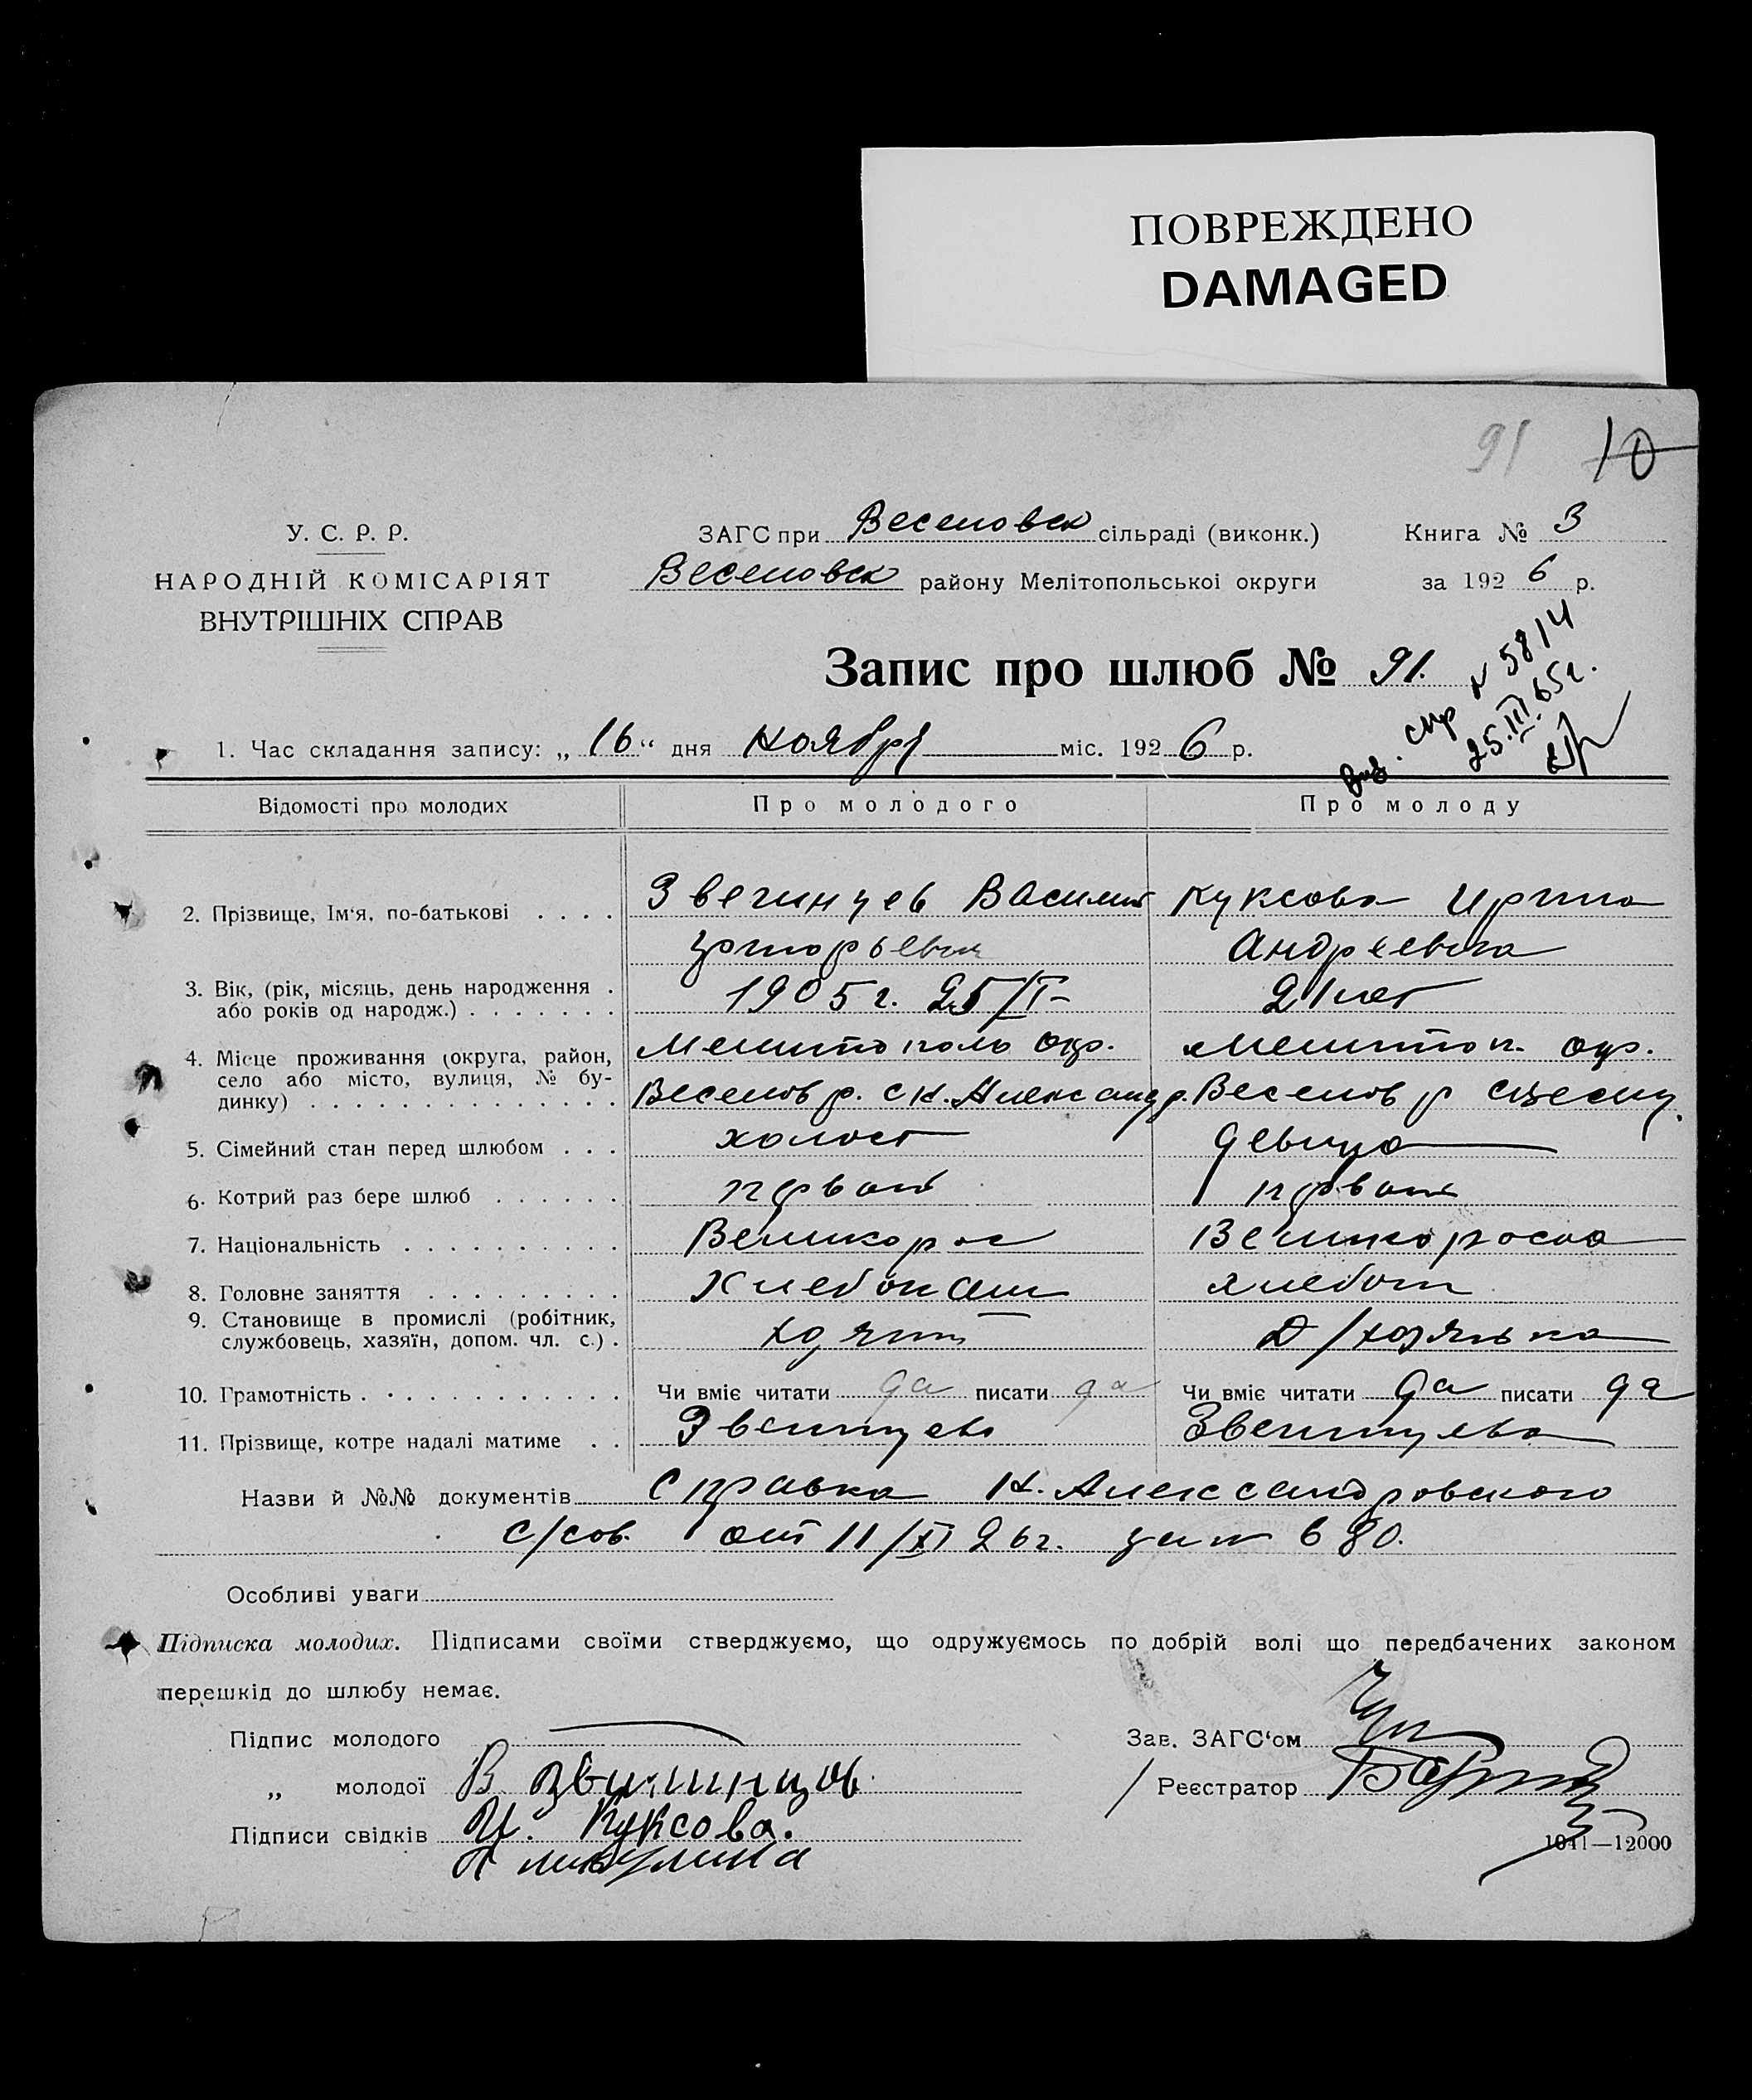 ПОВРЕЖДЕНО
DAMAGED
91 10
У. С. Р. Р.
НАРОДНІЙ КОМІСАРІЯТ
ВНУТРІШНІХ СПРАВ
ЗАГС при Веселовск сільраді (виконк.)
Веселовск району Мелітопольськоі округи
Книга № 3
за 1926 р.
Запис про шлюб № 91.
спр N 5814
25.III.65г.
1. Час складання запису: „16“ дня ноября міс. 1926 р.
Відомості про молодих Про молодого Про молоду
2. Прізвище, Ім‘я, по-батькові . . . . Звегинцев Василий Куксова Ирина
Андреевна
3. Вік, (рік, місяць, день народження . 1905 г. 25/I- 21 лет
або років од народж.) . . . . . . .
4. Місце проживання (округа, район, Мелитополь окр. Мелитоп. окр.
село або місто, вулиця, № бу- Веселов р. с Н. Александр. Веселов р
динку) . . . . . . . . . . . . . .
5. Сімейний стан перед шлюбом . . . холост девица
6. Котрий раз бере шлюб . . . . . . первой первой
7. Національність . . . . . . . . . . Великорос Великороска
8. Головне заняття . . . . . . . . . Хлебопаш хлебоп
9. Становище в промислі (робітник,
службовець, хазяїн, допом. чл. с.) . хозяин Д/хозяйка
10. Грамотність . . . . . . . . . . . . Чи вміє читати да писати да Чи вміє читати да писати да
11. Прізвище, котре надалі матиме . . Звегинцев Звегинцева
Назви й №№ документів Справка Н. Александровского
с/сов. от 11/XI 26г. за № 680.
Особливі уваги
Підписка молодих. Підписами своїми стверджуємо, що одружуємось по добрій волі що передбачених законом
перешкід до шлюбу немає.
Підпис молодого
Зав. ЗАГС‘ом
„ молодої В Звигинцов.
Реєстратор
Підписи свідків И. Куксова.
1041—12000